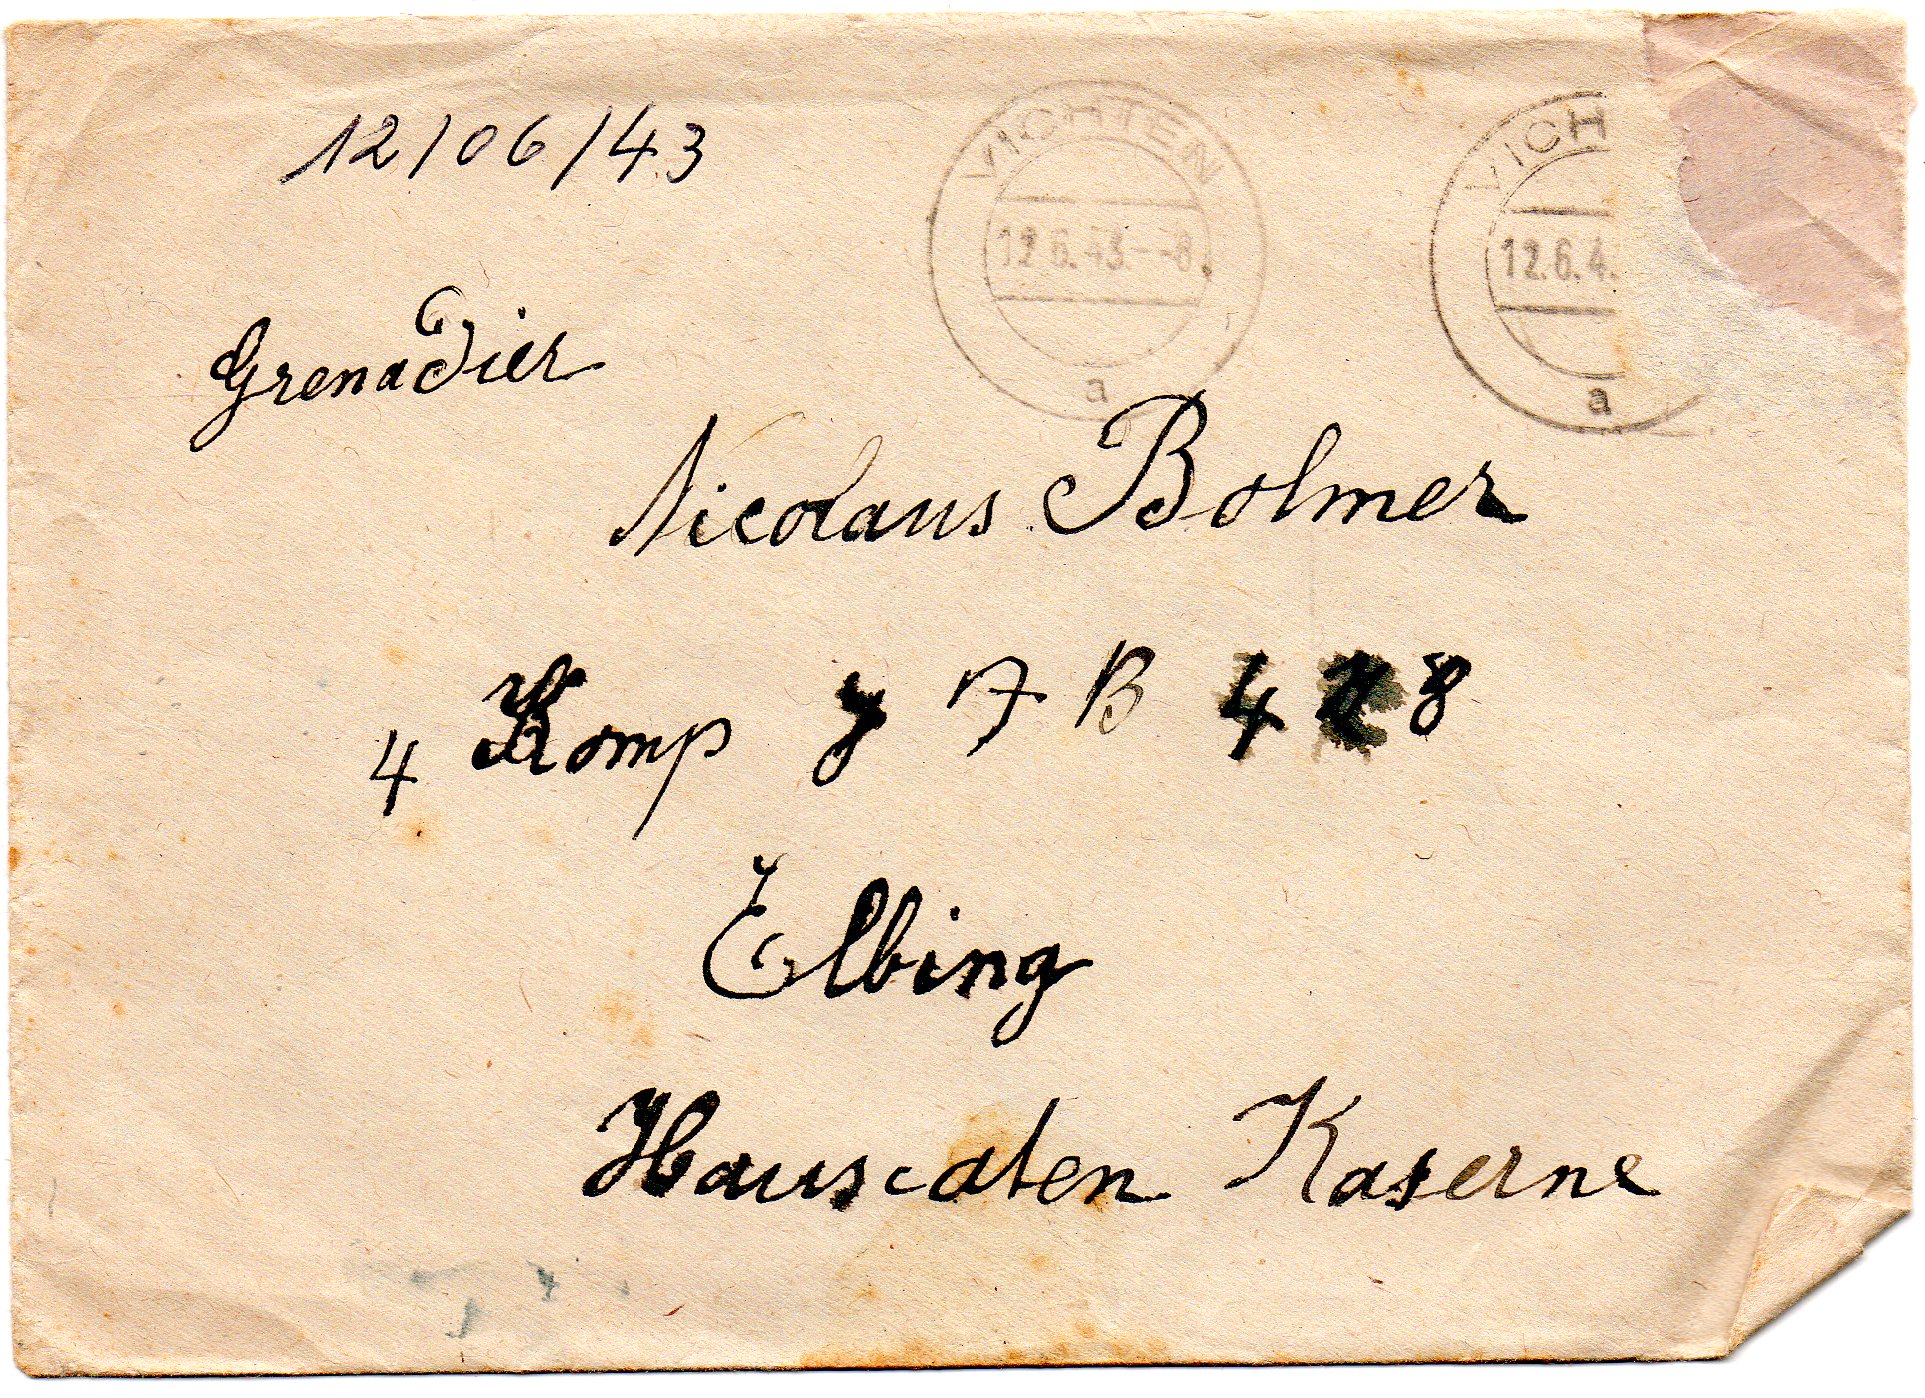 12/06/43
VICHTEN
12.6.43.--8
a
VICH
12.6.4
a
Grenadier
Nicolaus Bolmer
4 Komp B 4 8
Elbing
Hauscaten Kaserne